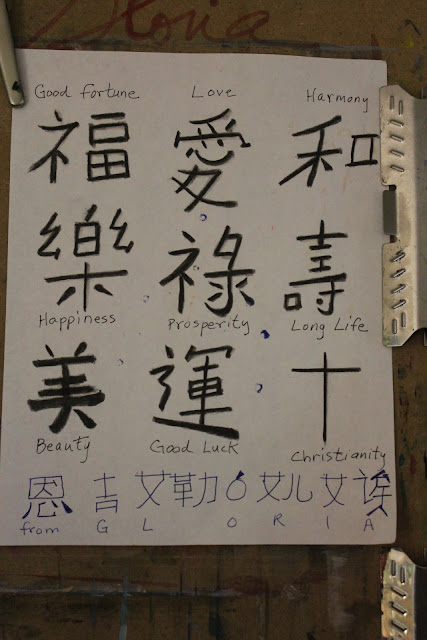 Gloria
Good fortune Love Harmony
福 愛 和
樂 祿 壽
Happiness Prosperity Long Life
美 運 十
Beauty Good Luck Christianity
恩 吉 艾勒 O 艾儿 艾 诶
from G L O R I A